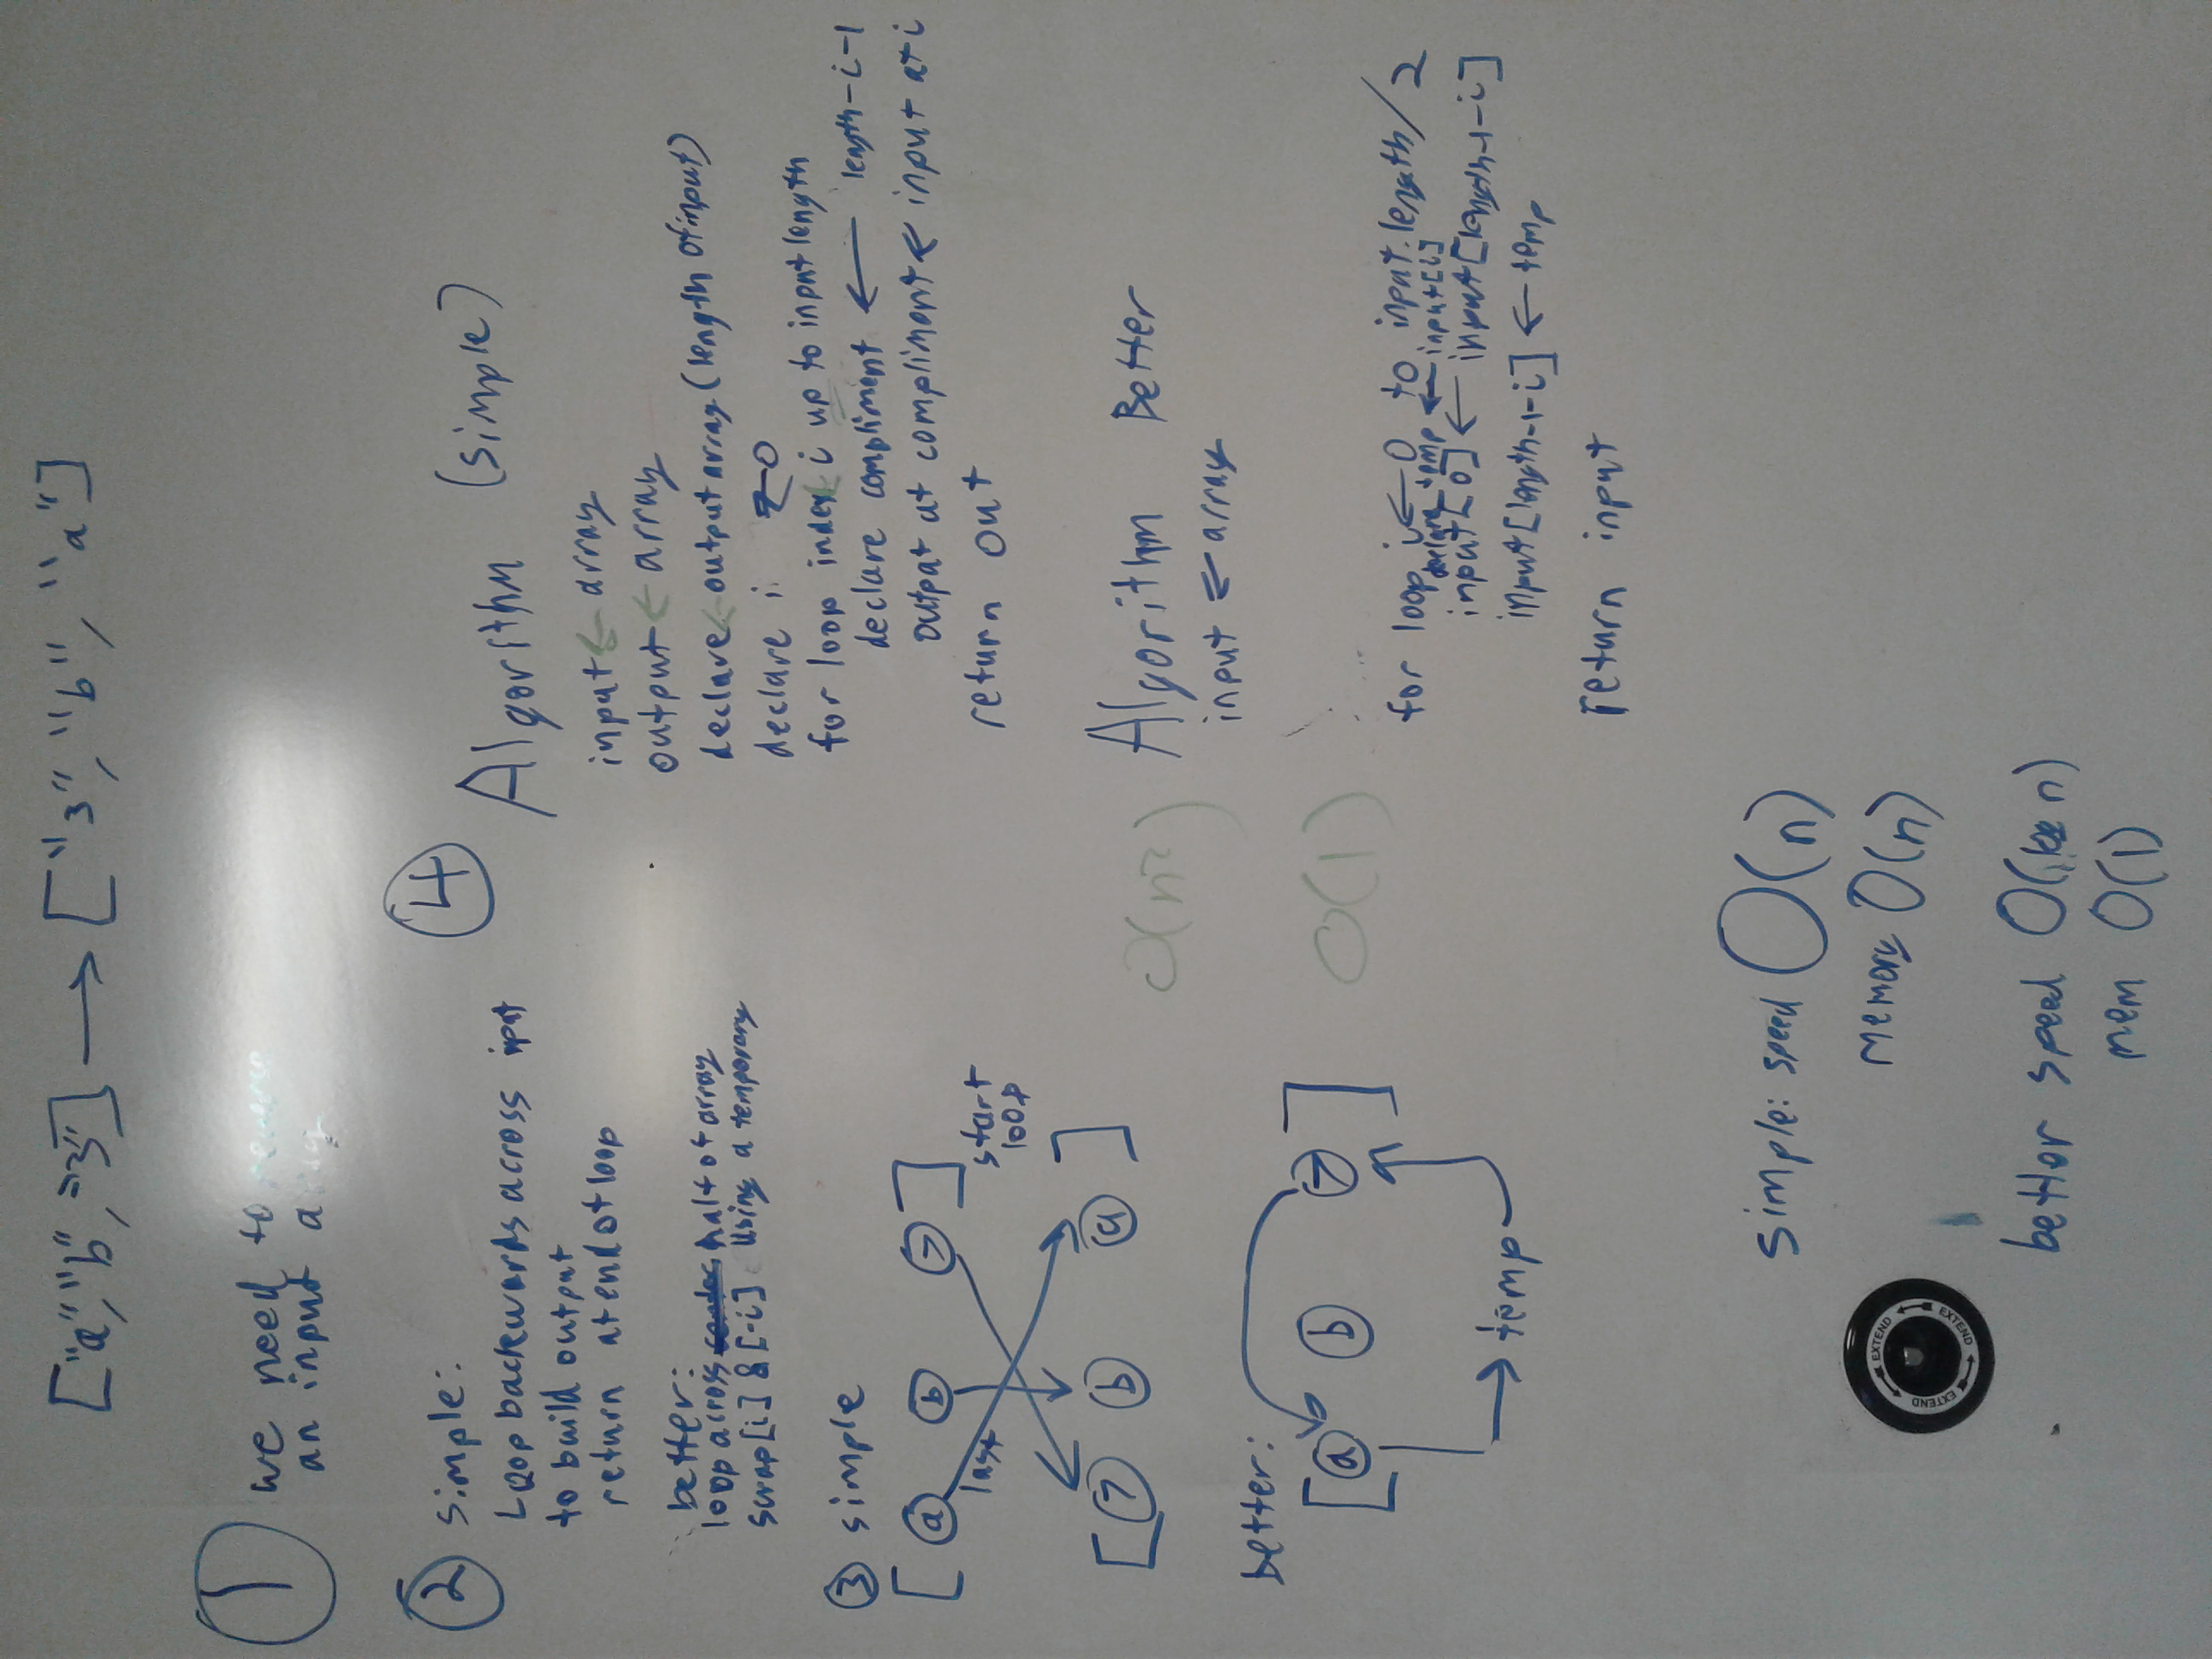 ["a", "b", "3"] → ["3", "b", "a"]
1 we need to reverse
an input a
2 simple:
Loop backwards across input
to build output
return at end of loop
better:
loop across half of array
swap [i] & [-i] using a temporary
3 simple
[ a b 7 ]
last
start
loop
[ 7 b a ]
better:
[ a b 7 ]
→ temp
O(n²)
O(1)
4 Algorithm (simple)
input ← array
output ← array
declare ← output array (length of input)
declare i ← 0
for loop index i up to input length
declare compliment ← length-i-1
output at compliment ← input at i
return out
Algorithm Better
input ← array
for loop i ← 0 to input.length/2
declare temp ← input[i]
input[0] ← input[length-1-i]
input[length-1-i] ← temp
return input
simple: speed O(n)
memory O(n)
EXTEND
EXTEND
EXTEND
better speed O( n)
mem O(1)